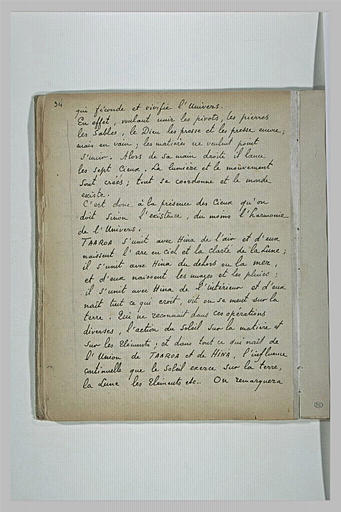 34
qui féconde et vivifie l'Univers.
En effet, voulant unir les pivots, les pierres
les sables, le Dieu les presse et les presse encore;
mais en vain; les matières ne veulent point
s'unir. Alors de sa main droite il lance
les sept Cieux. La lumière et le mouvement
sont créés; tout se coordonne et le monde
existe.
C'est donc à la présence des Cieux qu'on
doit sinon l'existence, du moins l'harmonie
de l'Univers.
TAAROA s'unit avec Hina de l'air et d'eux
naissent l'arc en ciel et la clarté de la Lune;
il s'unit avec Hina du dehors ou la mer,
et d'eux naissent les nuages et les pluies;
il s'unit avec Hina de l'intérieur et d'eux
naît tout ce qui croît, vit ou se meut sur la
terre. Qui ne reconnait dans ces opérations
diverses, l'action du Soleil sur la matière et
sur les Eléments; et dans tout ce qui naît de
l'Union de TAAROA et de HINA, l'influence
continuelle que le Soleil exerce sur la terre,
la Lune les Eléments etc.. On remarquera